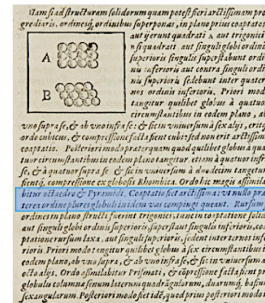 Nam si ad structuram solidorum quam potest fieri arctissimam pro-
grediaris, ordinesq́; ordinibus superponas, in plano prius coaptatos
aut ij erunt quadrati A aut trigonici
B. si quadrati aut singuli globi ordinis
superioris singulis superstabunt ordi-
nis inferioris aut contra singuli ordi-
nis superioris sedebunt inter quater-
nos ordinis inferioris. Priori modo
tangitur quilibet globus à quatuor
circumstantibus in eodem plano, ab
uno supra se, & ab uno infra se: & sic in universum à sex alijs, eritq́;
ordo cubicus, & compressione facta fient cubi: sed non erit arctissima
coaptatio. Posteriori modo praeterquam quod quilibet globus à qua-
tuor circumstantibus in eodem plano tangitur etiam à quatuor infra
se, & à quatuor supra se, & sic in universum à duodecim tangetur;
fientq́; compressione ex globosis Rhombica. Ordo hic magis assimila-
bitur octaëdro & Pyramidi. Coaptatio fiet arctissima: ut nullo prae-
terea ordine plures globuli in idem vas compingi queant. Rursum
ordines in plano structi fuerint trigonici, tunc in coaptatione solida
aut singuli globi ordinis superioris superstant singulis inferioris, coa-
ptatione rursum laxa, aut singuli superioris, sedent inter ternos infe-
rioris. Priori modo tangitur quilibet globus à sex circumstantibus in
eodem plano, ab uno supra, & ab uno infra se, & sic in universum ab
octo alijs. Ordo assimilabitur Prismati, & compressione facta fient pro
globulis columnae senum laterum quadrangulorum, duarumq́; basium
sexangularum. Posteriori modo fiet idem, quod prius posteriori modo